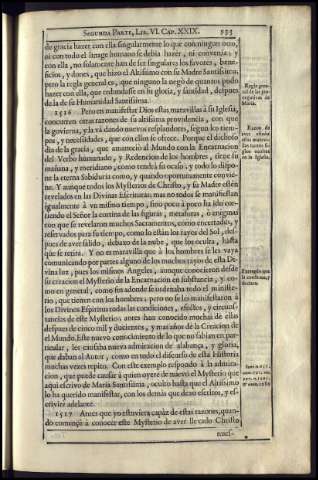 SEGUNDA PARTE, LIB. VI. CAP. XXIX. 935
de gracia hazer con ella singularmente lo que con ningun otro,
ni con todo el linage humano se debia hazer, ni convenia; y
con ella, no solamente han de ser singulares los favores, bene-
ficios, y dones, que hizo el Altissimo con su Madre Santissima;
pero la regla general es, que ninguno la negò de quantos pudo
hazer con ella, que redundasse en su gloria, y santidad, despues
de la de su Humanidad Santissima.
1516 Pero en manifestar Dios estas maravillas à su Iglesia,
concurren otras razones de su altissima providencia, con que
la govierna, y la và dando nuevos resplandores, segun los tiem-
pos, y necessidades, que con ellos se ofrece. Porque el dichoso
dia de la gracia, que amaneciò al Mundo con la Encarnacion
del Verbo humanado, y Redencion de los hombres, tiene su
mañana, y meridiano, como tendrà su ocaso; y todo lo dispo-
ne la eterna Sabiduria como, y quando oportunamente convie-
ne. Y aunque todos los Mysterios de Christo, y su Madre estèn
revelados en las Divinas Escrituras; mas no todos se manifiestan
igualmente à un mismo tiempo, sino poco à poco ha ido cor-
riendo el Señor la cortina de las figuras, metaforas, ò enigmas
con que se revelaron muchos Sacramentos, como encerrados, y
reservados para su tiempo, como lo estàn los rayos del Sol, des-
pues de aver salido, debaxo de la nube, que los oculta, hasta
que se retira. Y no es maravilla que à los hombres se les vaya
comunicando por partes alguno de los muchos rayos de esta Di-
vina luz, pues los mismos Angeles, aunque conocieron desde
su creacion el Mysterio de la Encarnacion en substancia, y co-
mo en general, como fin adonde se ordenaba todo el ministe-
rio, que tienen con los hombres; pero no se les manifestaron à
los Divinos Espiritus todas las condiciones, efectos, y circuns-
tancias de este Mysterio; antes han conocido muchas de ellas
despues de cinco mil y ducientos, y mas años de la Creacion de
el Mundo. Este nuevo conocimiento de lo que no sabian en par-
ticular, les causaba nueva admiracion de alabança, y gloria,
que daban al Autor, como en todo el discurso de esta Historia
muchas vezes repito. Con este exemplo respondo à la admira-
cion, que puede causar à quien oyere de nuevo el Mysterio, que
aqui escrivo de Maria Santissima, oculto hasta que el Altissimo
lo ha querido manifestar, con los demàs que dexo escritos, y es-
crivirè adelante.
1517 Antes que yo estuviera capàz de estas razones, quan-
do comencè à conocer este Mysterio de aver llevado Christo
Regla gene-
ral de las pre-
rogativas de
Maria.
Razon de